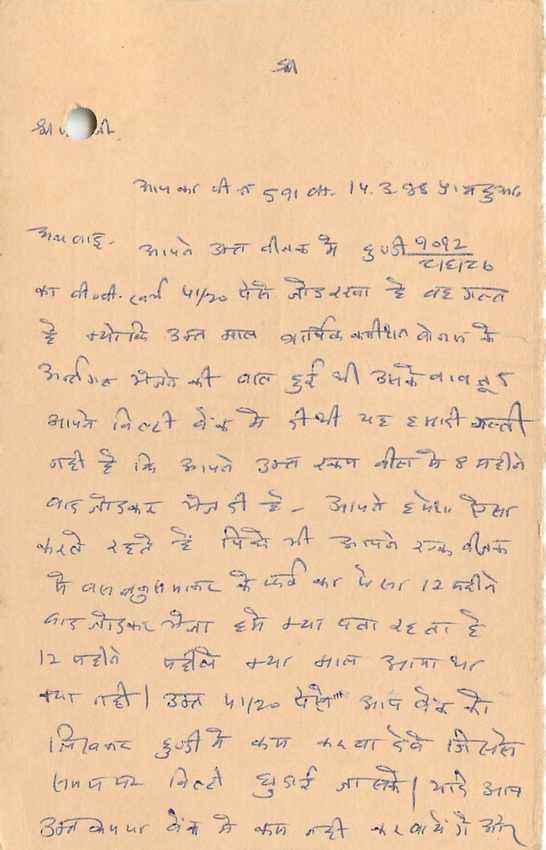 श्री
श्री
आपका बी न 591 ता. 14.3.88 प्राप्त हुआ
आपने उक्त बीजक में हुण्डी १०१२
का वी.पी. खर्च ५१/२० पैसे जोड रखा है वह गल्त
है क्योकि उक्त माल वार्षिक कमीशन योजना के
अर्न्तगत भेजने की बात हुई थी उसके बावजूद
आपने बिल्टी बैंक मे दी थी यह हमारी गल्ती
नही है कि आपने उक्त रकम बील मे 8 महीने
बाद जोडकर भेज दी है - आपने हमेशा ऐसा
करते रहते हैं पिछे भी आपने एक बीजक
मे के फर्क का पैसा 12 महीने
बाद जोडकर भेजा हमे क्या पता रहता है
12 महीने पहले क्या माल आया था
क्या नही | उक्त ५१/२० पैसे आप बैंक को
लिखकर हुण्डी मे कम करवा देवे जिससे
समय पर बिल्टी छुडाई जा सके | यदि आप
उक्त रुपया बैंक मे कम नही करवायेगें और